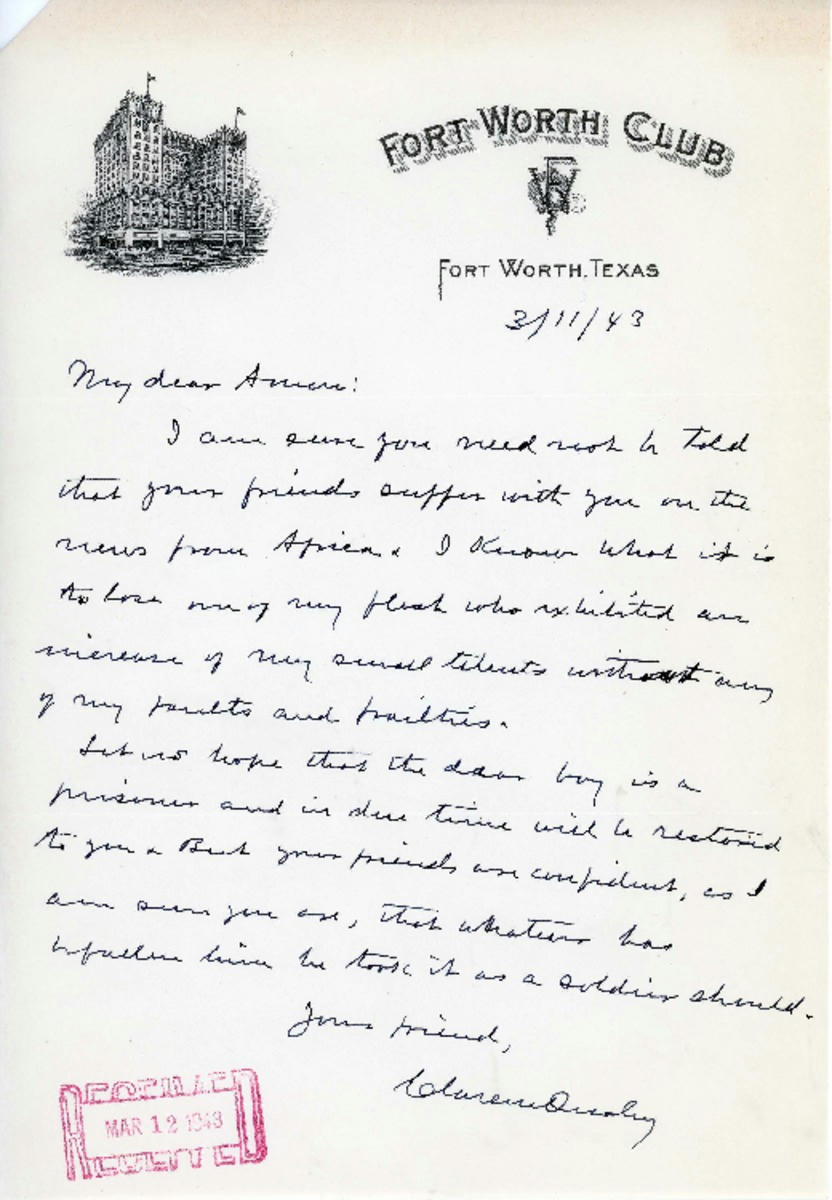 FORT WORTH CLUB
FORT WORTH, TEXAS
3/11/43
My dear Amon:
I am sure you need not be told
that your friends suffer with you on the
news from Africa. I know what it is
to lose one of my flesh who exhibited an
increase of my small talents without any
of my faults and frailties.
Let us hope that the dear boy is a
prisoner and in due time will be restored
to you. But your friends are confident, as I
am sure you are, that whatever has
befallen him he took it as a soldier should.
Your friend,
Clarence Ousley
RECEIVED
MAR 12 1943
RECEIVED